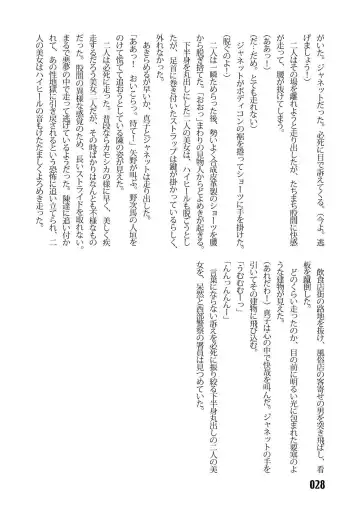 がいた。ジャネットだった。必死に目で訴えてくる。（今よ。逃
げましょう！）
二人はその場を離れようと走り出したが、たちまち股間に快感
が走って、腰が抜けてしまう。
（ああっ！）
（だ･だめ。とても走れない）
ジャネットがボディコンの裾を捲ってショーツに手を掛けた。
（脱ぐのよ！）
二人は一瞬ためらった後、勢いよく合成皮革製のショーツを腰
から脱ぎ捨てた。「おおっ」まわりの見物人からどよめきが起きる。
下半身を丸出しにした二人の美女は、ハイヒールも脱ごうとし
たが、足首に巻き付いたストラップは鍵が掛かっているらしく、
外れなかった。
あきらめるが早いか、真子とジャネットは走り出した。
「ああっ！　おいこらっ、待て！」矢野が叫ぶ。野次馬の人垣を
のけて慌てて追おうとしている薩の姿が見えた。
二人は必死に走った。普段ならカモシカの様に早く、美しく疾
走するだろう美女二人だが、その時ばかりはなんとも不様なもの
だった。股間の異様な感覚のため、長いストライドを取れない。
まるで悪夢の中で走って逃げているようだった。陳達に追い付か
れて、あの性地獄に引き戻されるという恐怖に追い立てられ、二
人の美女はハイヒールの音もけたたましくよろめき走った。
飲食店街の路地を抜け、風俗店の客寄せの男を突き飛ばし、看
板を蹴倒した。
どのくらい走ったのか、目の前に明るい光に包まれた要塞のよ
うな建物が見えた。
（あれだわー）真子は心の中で快哉を叫んだ。ジャネットの手を
引いてその建物に飛び込む。
「うむむむーっ」
「んんっんんんー」
言葉にならない訴えを必死に振りたてる下半身丸出しの二人の美
女を、呆然と西部警察の署員は見つめていた。
028